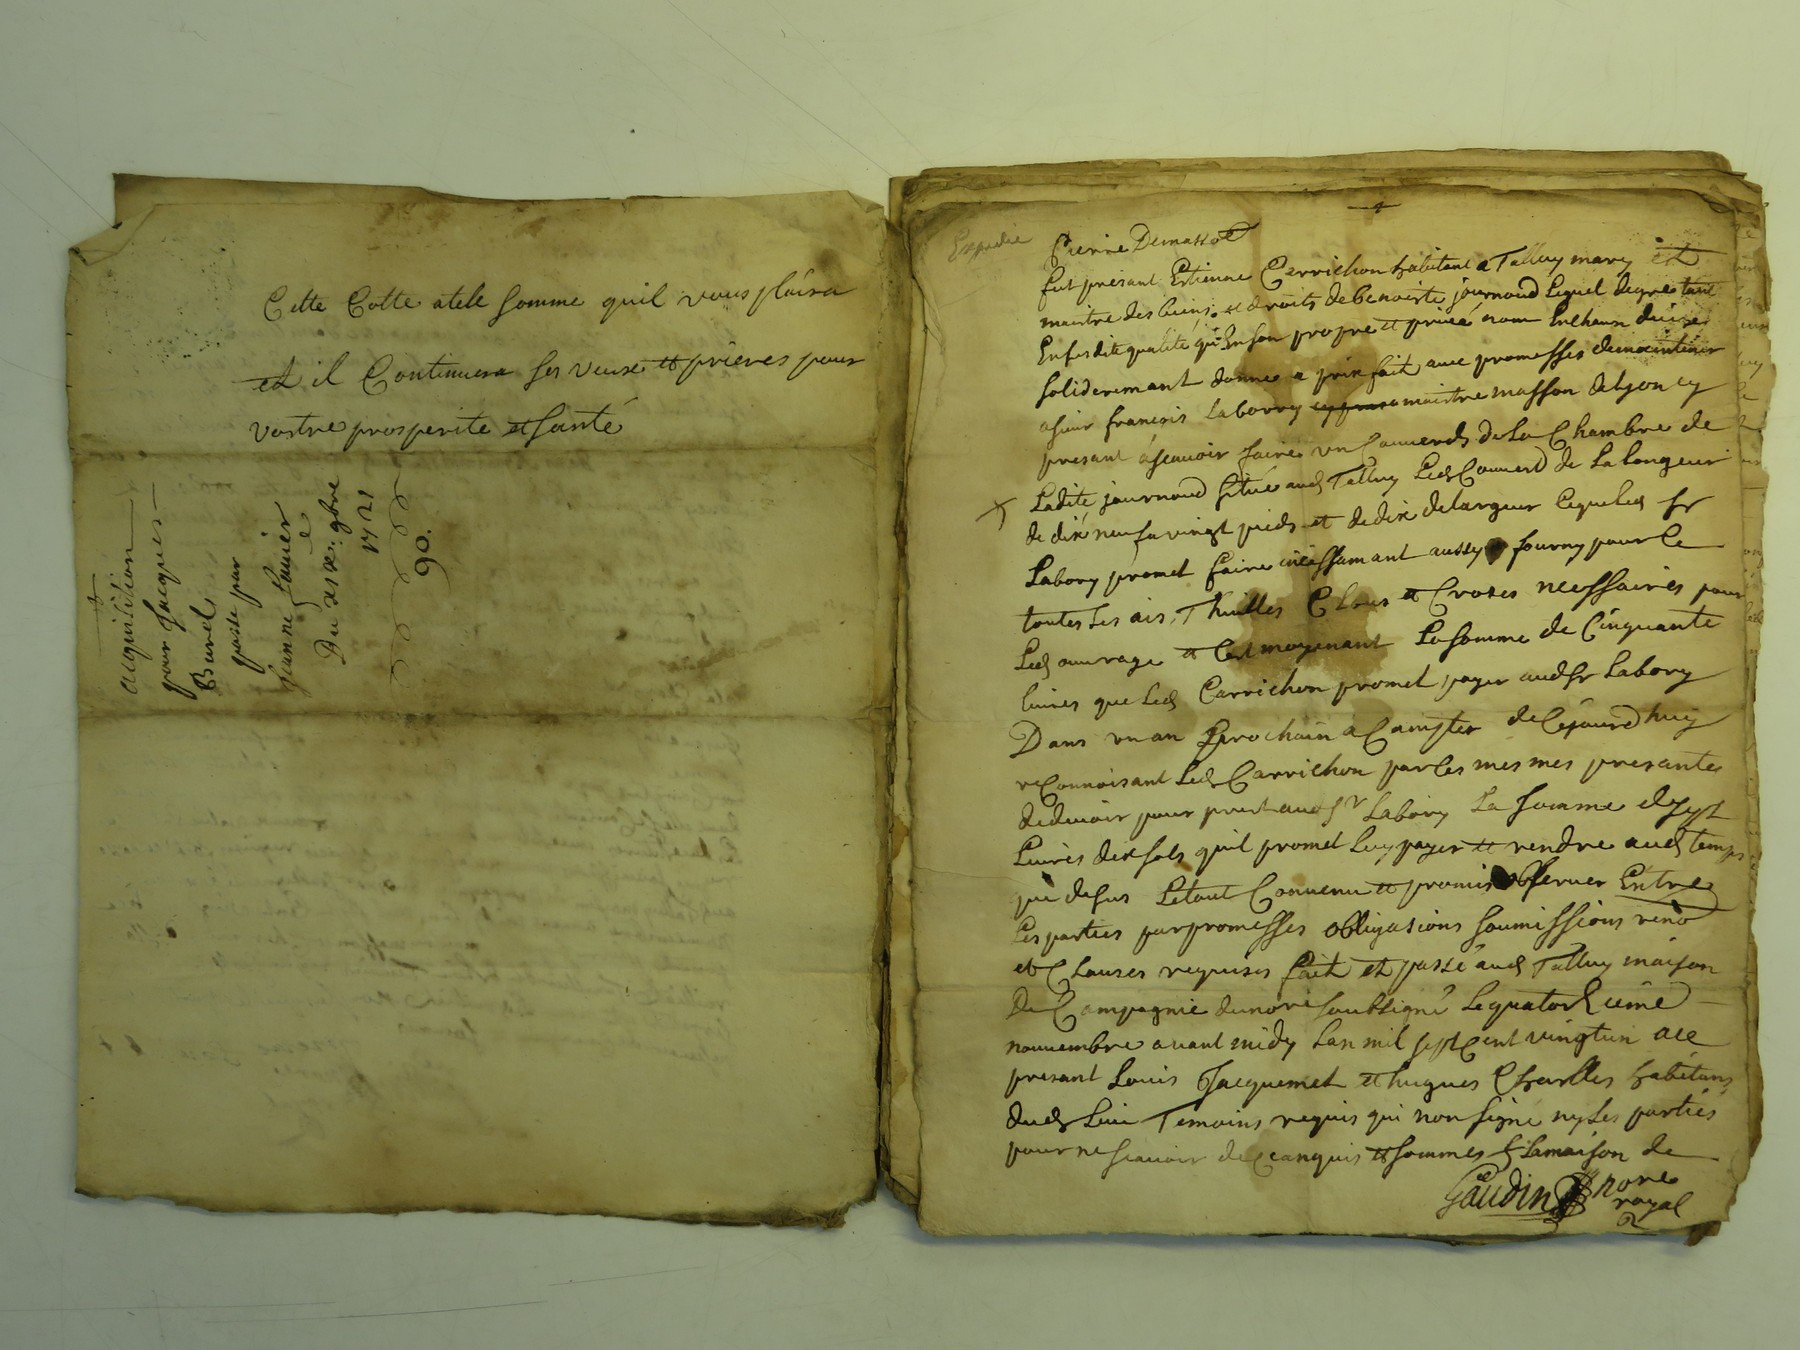 Cette Cotte atele somme quil vous plaira
et il Continuera ses veux et prieres pour
vostre prosperite et santé
acquisition
pour Jacques
Burel
passe par
jeanne
Du xix e. 9bre
1721
90.
Expedie
Pierre Demasso
fut présant Estienne Carrichon habitant a Talluy mary et
maistre des biens et droits de benoiste journoud Lequel de gre tant
En sesdite qualité qu'En son propre et privé nom
soliderement donne a prix fait avec promesses de maintenir
a sieur françois Laborry maistre masson de Lyon cy
presant ascavoir faire un Couverds de La Chambre de
Ladite journoud situé aud Talluy Led Couverd de La longeur
de dix neuf a vingt pieds et de dix de largeur Lequeled sr
Labory promet faire incessamant aussy fourny pour le
toutes les ais, Thuilles Clous et Croses necessaires pour
Led ouvrage et Cest moyenant La somme de Cinquante
livres que Led Carrichon promet payer aud sr Labory
Dans un an prochain a Compter de Cejourdhuy
reConnoisant Led Carrichon par les mesmes presantes
de devoir pour prest aud sr Labory La somme de sept
Livres dix sols quil promet Luy payer et rendre aud temps
que desus Le tout Convenu et promis observer Entre
Les parties par promesses obligations soumissions reno
et Clauses requises fait et passé aud Talluy maison
De Campagnie du no.re soubsigné Le quatorzieme
nouvembre avant midy Lan mil sept Cent vingtun
presant Louis Jacquemet et hugues Charlles habitans
dud Lieu Temoins requis qui non signé ny Les parties
pour ne scavoir de Ce anquis et sommes de
Gaudin no.re
royal